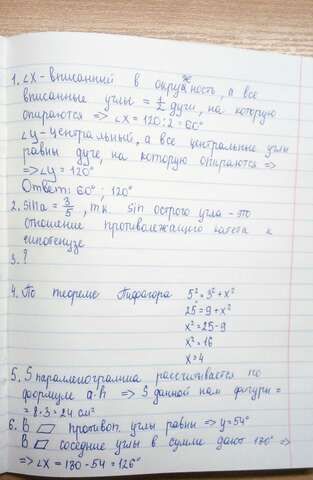 1. ∠X - вписанный в окружность, а все
вписанные углы = 1/2 дуги, на которую
опираются => ∠X = 120:2 = 60°
∠y - центральный, а все центральные углы
равны дуге, на которую опираются =>
=> ∠y = 120°
Ответ: 60°; 120°
2. sina = 3/5, т.к. sin острого угла - это
отношение противолежащего катета к
гипотенузе
3. ?
4. По теореме Пифагора 5² = 3² + x²
25 = 9 + x²
x² = 25 - 9
x² = 16
x = 4
5. S параллелограмма рассчитывается по
формуле a·h => S данной нам фигуры =
= 8·3 = 24 см²
6. В ▱ противоп. углы равны => y = 54°
В ▱ соседние углы в сумме дают 180° =>
=> ∠X = 180 - 54 = 126°